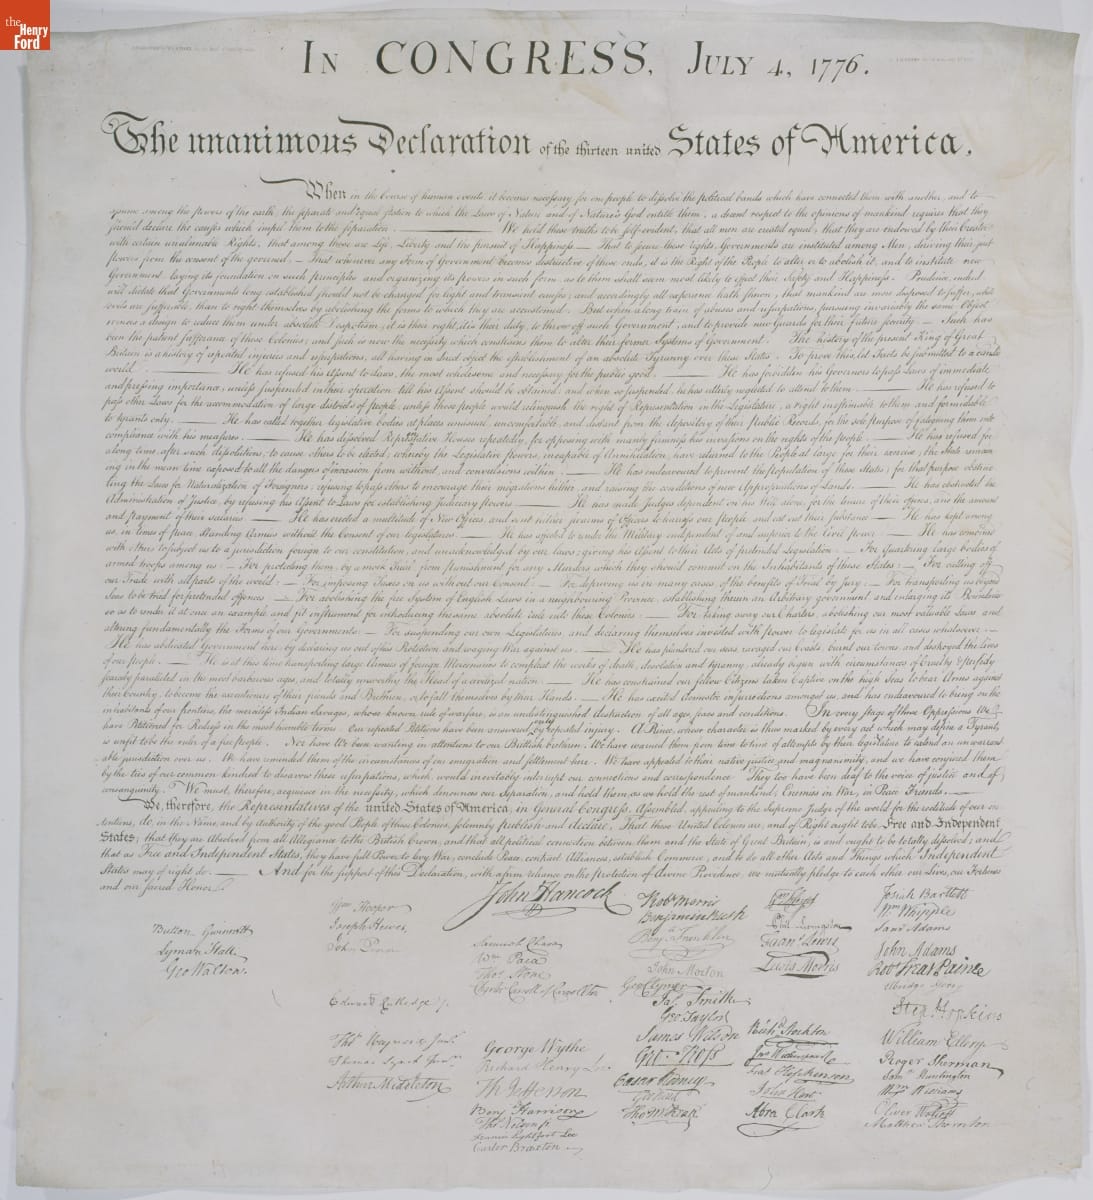 the Henry Ford
In CONGRESS, July 4, 1776.
The unanimous Declaration of the thirteen united States of America,
When in the Course of human events it becomes necessary for one people to dissolve the political bands which have connected them with another, and to
assume among the powers of the earth, the separate and equal station to which the Laws of Nature and of Nature's God entitle them, a decent respect to the opinions of mankind requires that they
should declare the causes which impel them to the separation. — We hold these truths to be self-evident, that all men are created equal, that they are endowed by their Creator
with certain unalienable Rights, that among these are Life, Liberty and the pursuit of Happiness — That to secure these rights, Governments are instituted among Men, deriving their just
powers from the consent of the governed, — That whenever any Form of Government becomes destructive of these ends, it is the Right of the People to alter or to abolish it, and to institute new
Government, laying its foundation on such principles and organizing its powers in such form, as to them shall seem most likely to effect their Safety and Happiness. Prudence, indeed
will dictate that Governments long established should not be changed for light and transient causes; and accordingly all experience hath shewn, that mankind are more disposed to suffer, while
evils are sufferable, than to right themselves by abolishing the forms to which they are accustomed. But when a long train of abuses and usurpations, pursuing invariably the same Object
evinces a design to reduce them under absolute Despotism, it is their right, it is their duty, to throw off such Government, and to provide new Guards for their future security. — Such has
been the patient sufferance of these Colonies; and such is now the necessity which constrains them to alter their former Systems of Government. The history of the present King of Great
Britain is a history of repeated injuries and usurpations, all having in direct object the establishment of an absolute Tyranny over these States. To prove this, let Facts be submitted to a candid
world. — He has refused his Assent to Laws, the most wholesome and necessary for the public good. — He has forbidden his Governors to pass Laws of immediate
and pressing importance, unless suspended in their operation till his Assent should be obtained; and when so suspended, he has utterly neglected to attend to them. — He has refused to
pass other Laws for the accommodation of large districts of people, unless those people would relinquish the right of Representation in the Legislature, a right inestimable to them and formidable
to tyrants only. — He has called together legislative bodies at places unusual, uncomfortable, and distant from the depository of their public Records, for the sole purpose of fatiguing them into
compliance with his measures. — He has dissolved Representative Houses repeatedly, for opposing with manly firmness his invasions on the rights of the people. — He has refused for
a long time, after such dissolutions, to cause others to be elected; whereby the Legislative powers, incapable of Annihilation, have returned to the People at large for their exercise; the State remain
ing in the mean time exposed to all the dangers of invasion from without, and convulsions within. — He has endeavoured to prevent the population of these States; for that purpose obstruc
ting the Laws for Naturalization of Foreigners; refusing to pass others to encourage their migrations hither, and raising the conditions of new Appropriations of Lands. — He has obstructed the
Administration of Justice, by refusing his Assent to Laws for establishing Judiciary powers. — He has made Judges dependent on his Will alone, for the tenure of their offices, and the amount
and payment of their salaries. — He has erected a multitude of New Offices, and sent hither swarms of Officers to harrass our people, and eat out their substance. — He has kept among
us, in times of peace, Standing Armies without the Consent of our legislatures. — He has affected to render the Military independent of and superior to the Civil power. — He has combined
with others to subject us to a jurisdiction foreign to our constitution, and unacknowledged by our laws; giving his Assent to their Acts of pretended Legislation: — For Quartering large bodies of
armed troops among us: — For protecting them, by a mock Trial, from punishment for any Murders which they should commit on the Inhabitants of these States: — For cutting off
our Trade with all parts of the world: — For imposing Taxes on us without our Consent: — For depriving us in many cases, of the benefits of Trial by Jury: — For transporting us beyond
Seas to be tried for pretended offences — For abolishing the free System of English Laws in a neighbouring Province, establishing therein an Arbitrary government, and enlarging its Boundaries
so as to render it at once an example and fit instrument for introducing the same absolute rule into these Colonies: — For taking away our Charters, abolishing our most valuable Laws, and
altering fundamentally the Forms of our Governments: — For suspending our own Legislatures, and declaring themselves invested with power to legislate for us in all cases whatsoever. —
He has abdicated Government here, by declaring us out of his Protection and waging War against us. — He has plundered our seas, ravaged our Coasts, burnt our towns, and destroyed the lives
of our people. — He is at this time transporting large Armies of foreign Mercenaries to compleat the works of death, desolation and tyranny, already begun with circumstances of Cruelty & perfidy
scarcely paralleled in the most barbarous ages, and totally unworthy the Head of a civilized nation. — He has constrained our fellow Citizens taken Captive on the high Seas to bear Arms against
their Country, to become the executioners of their friends and Brethren, or to fall themselves by their Hands. — He has excited domestic insurrections amongst us, and has endeavoured to bring on the
inhabitants of our frontiers, the merciless Indian Savages, whose known rule of warfare, is an undistinguished destruction of all ages, sexes and conditions. In every stage of these Oppressions We
have Petitioned for Redress in the most humble terms: Our repeated Petitions have been answered only by repeated injury. A Prince, whose character is thus marked by every act which may define a Tyrant,
is unfit to be the ruler of a free people. Nor have We been wanting in attentions to our Brittish brethren. We have warned them from time to time of attempts by their legislature to extend an unwarrant
able jurisdiction over us. We have reminded them of the circumstances of our emigration and settlement here. We have appealed to their native justice and magnanimity, and we have conjured them
by the ties of our common kindred to disavow these usurpations, which, would inevitably interrupt our connections and correspondence. They too have been deaf to the voice of justice and of
consanguinity. We must, therefore, acquiesce in the necessity, which denounces our Separation, and hold them, as we hold the rest of mankind, Enemies in War, in Peace Friends. —
We, therefore, the Representatives of the united States of America, in General Congress, Assembled, appealing to the Supreme Judge of the world for the rectitude of our in
tentions, do, in the Name, and by Authority of the good People of these Colonies, solemnly publish and declare, That these United Colonies are, and of Right ought to be Free and Independent
States; that they are Absolved from all Allegiance to the British Crown, and that all political connection between them and the State of Great Britain, is and ought to be totally dissolved; and
that as Free and Independent States, they have full Power to levy War, conclude Peace, contract Alliances, establish Commerce, and to do all other Acts and Things which Independent
States may of right do. — And for the support of this Declaration, with a firm reliance on the protection of divine Providence, we mutually pledge to each other our Lives, our Fortunes
and our sacred Honor.
Button Gwinnett
Lyman Hall
Geo Walton.
Wm Hooper
Joseph Hewes,
John Penn
Edward Rutledge /.
Thos Heyward Junr.
Thomas Lynch Junr.
Arthur Middleton
John Hancock
Samuel Chase
Wm Paca
Thos Stone
Charles Carroll of Carrollton
George Wythe
Richard Henry Lee
Th Jefferson
Benj Harrison
Thos Nelson jr.
Francis Lightfoot Lee
Carter Braxton
Robt Morris
Benjamin Rush
Benja Franklin
John Morton
Geo Clymer
Jas Smith.
Geo Taylor
James Wilson
Geo. Ross
Caesar Rodney
Geo Read
Tho M:Kean
Wm Floyd
Phil. Livingston
Frans Lewis
Lewis Morris
Richd Stockton
Jno Witherspoon
Fras Hopkinson
John Hart
Abra Clark
Josiah Bartlett
Wm Whipple
Saml Adams
John Adams
Robt Treat Paine
Elbridge Gerry
Step Hopkins
William Ellery
Roger Sherman
Saml Huntington
Wm Williams
Oliver Wolcott
Matthew Thornton